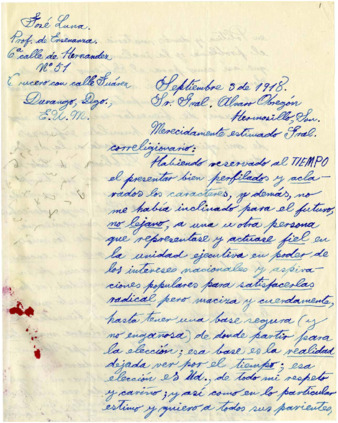 José Luna.
Prof. de Enseñanza.
6ª calle de Hernández
Nº 51
Crucero con calle Suárez
Durango, Dgo.,
E.U.M.
Septiembre 3 de 1918.
Sr. Gral. Alvaro Obregón
Hermosillo, Son.
Merecidamente estimado Gral.
correligionario:
Habiendo reservado al TIEMPO
el presentar bien perfilados y acla-
rados los caracteres, y demás, no
me había inclinado para el futuro,
no lejano, a una u otra persona
que representase y actuase fiel en
la unidad ejecutiva en poder de
los intereses nacionales y aspira-
ciones populares para satisfacerlas
radical pero maciza y cuerdamente,
hasta tener una base segura (y
no engañosa) de donde partir para
la elección; esa base es la realidad
dejada ver por el tiempo; esa
elección es Ud., de todo mi respeto
y cariño; y así como en lo particular
estimo y quiero a todos sus parientes,